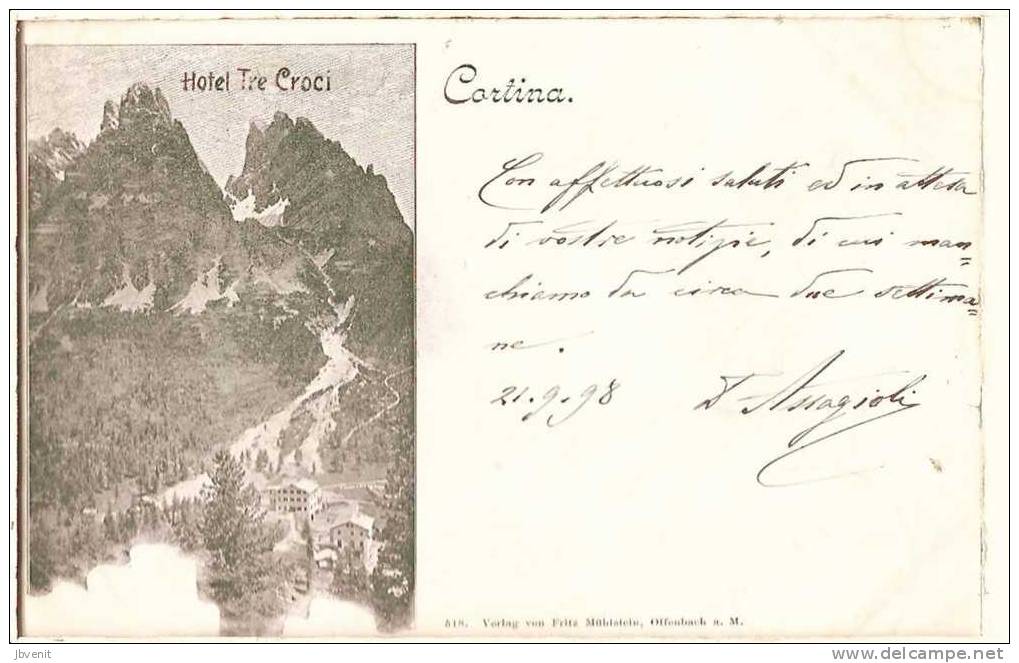 Hotel Tre Croci
Cortina.
Con affettuosi saluti ed in attesa
di vostre notizie, di cui man=
chiamo da circa due settima=
ne.
21.9.98 D Assagioli
518. Verlag von Fritz Mühlstein, Offenbach a. M.
jbvenit
www.delcampe.net